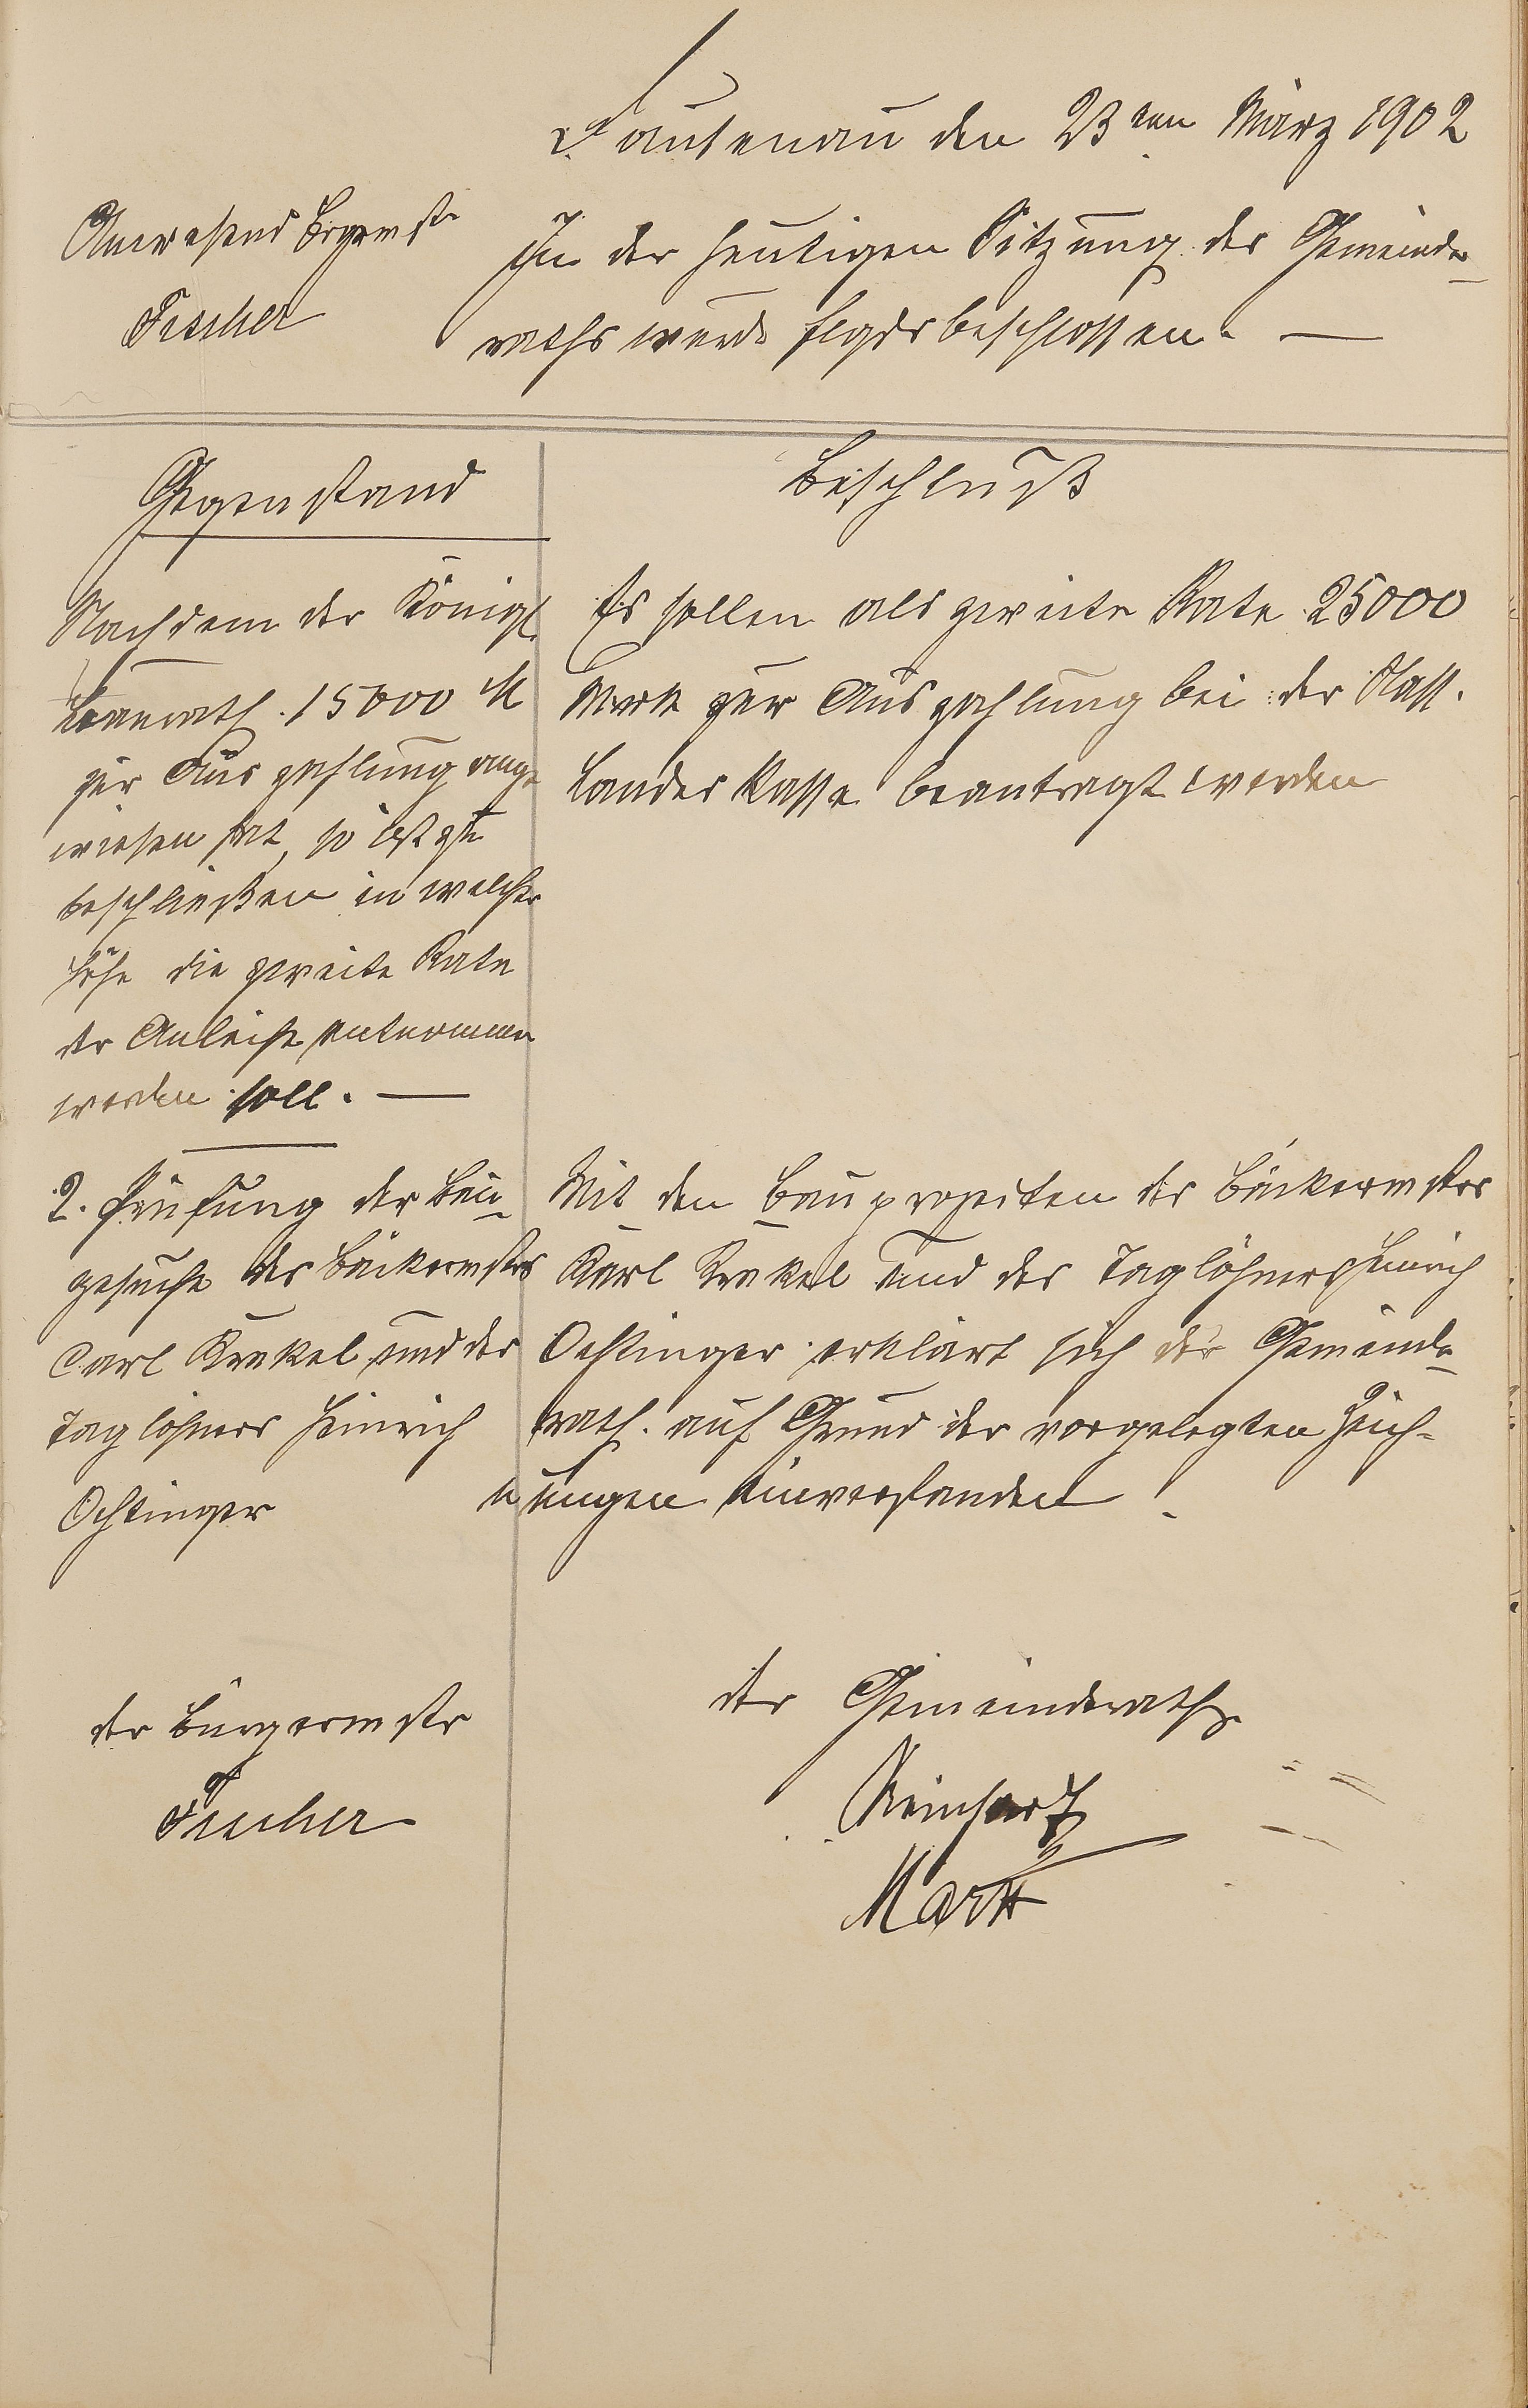 Lautenau den 23ten März 1902
Anwesend Brgrmstr
Fischer
In der heutigen Sitzung des Gemeinde-
raths wurde flgds beschlossen. —
Gegenstand
Nachdem der Königl.
Landrath. 15000 M
zur Auszahlung ange
wiesen hat, so ist zu
beschließen in welcher
Höhe die zweite Rate
der Anleihe entnommen
werden soll. —
Beschluß
Es sollen als zweite Rate 25000
Mark zur Auszahlung bei der Nass.
Landes Kasse beantragt werden
2. Prüfung der Bau-
gesuche des Bäckermstrs
Carl Krekel und des
Taglöhners Heinrich
Ochtinger
Mit den Bauprojekten des Bäckermstrs
Karl Krekel und des Taglöhners Heinrich
Ochtinger erklärt sich der Gemeinde-
rath. auf Grund der vorgelegten Zeich-
nungen einverstanden!
der Bürgermstr
Fischer
der Gemeinderath
Reinhard
Marx